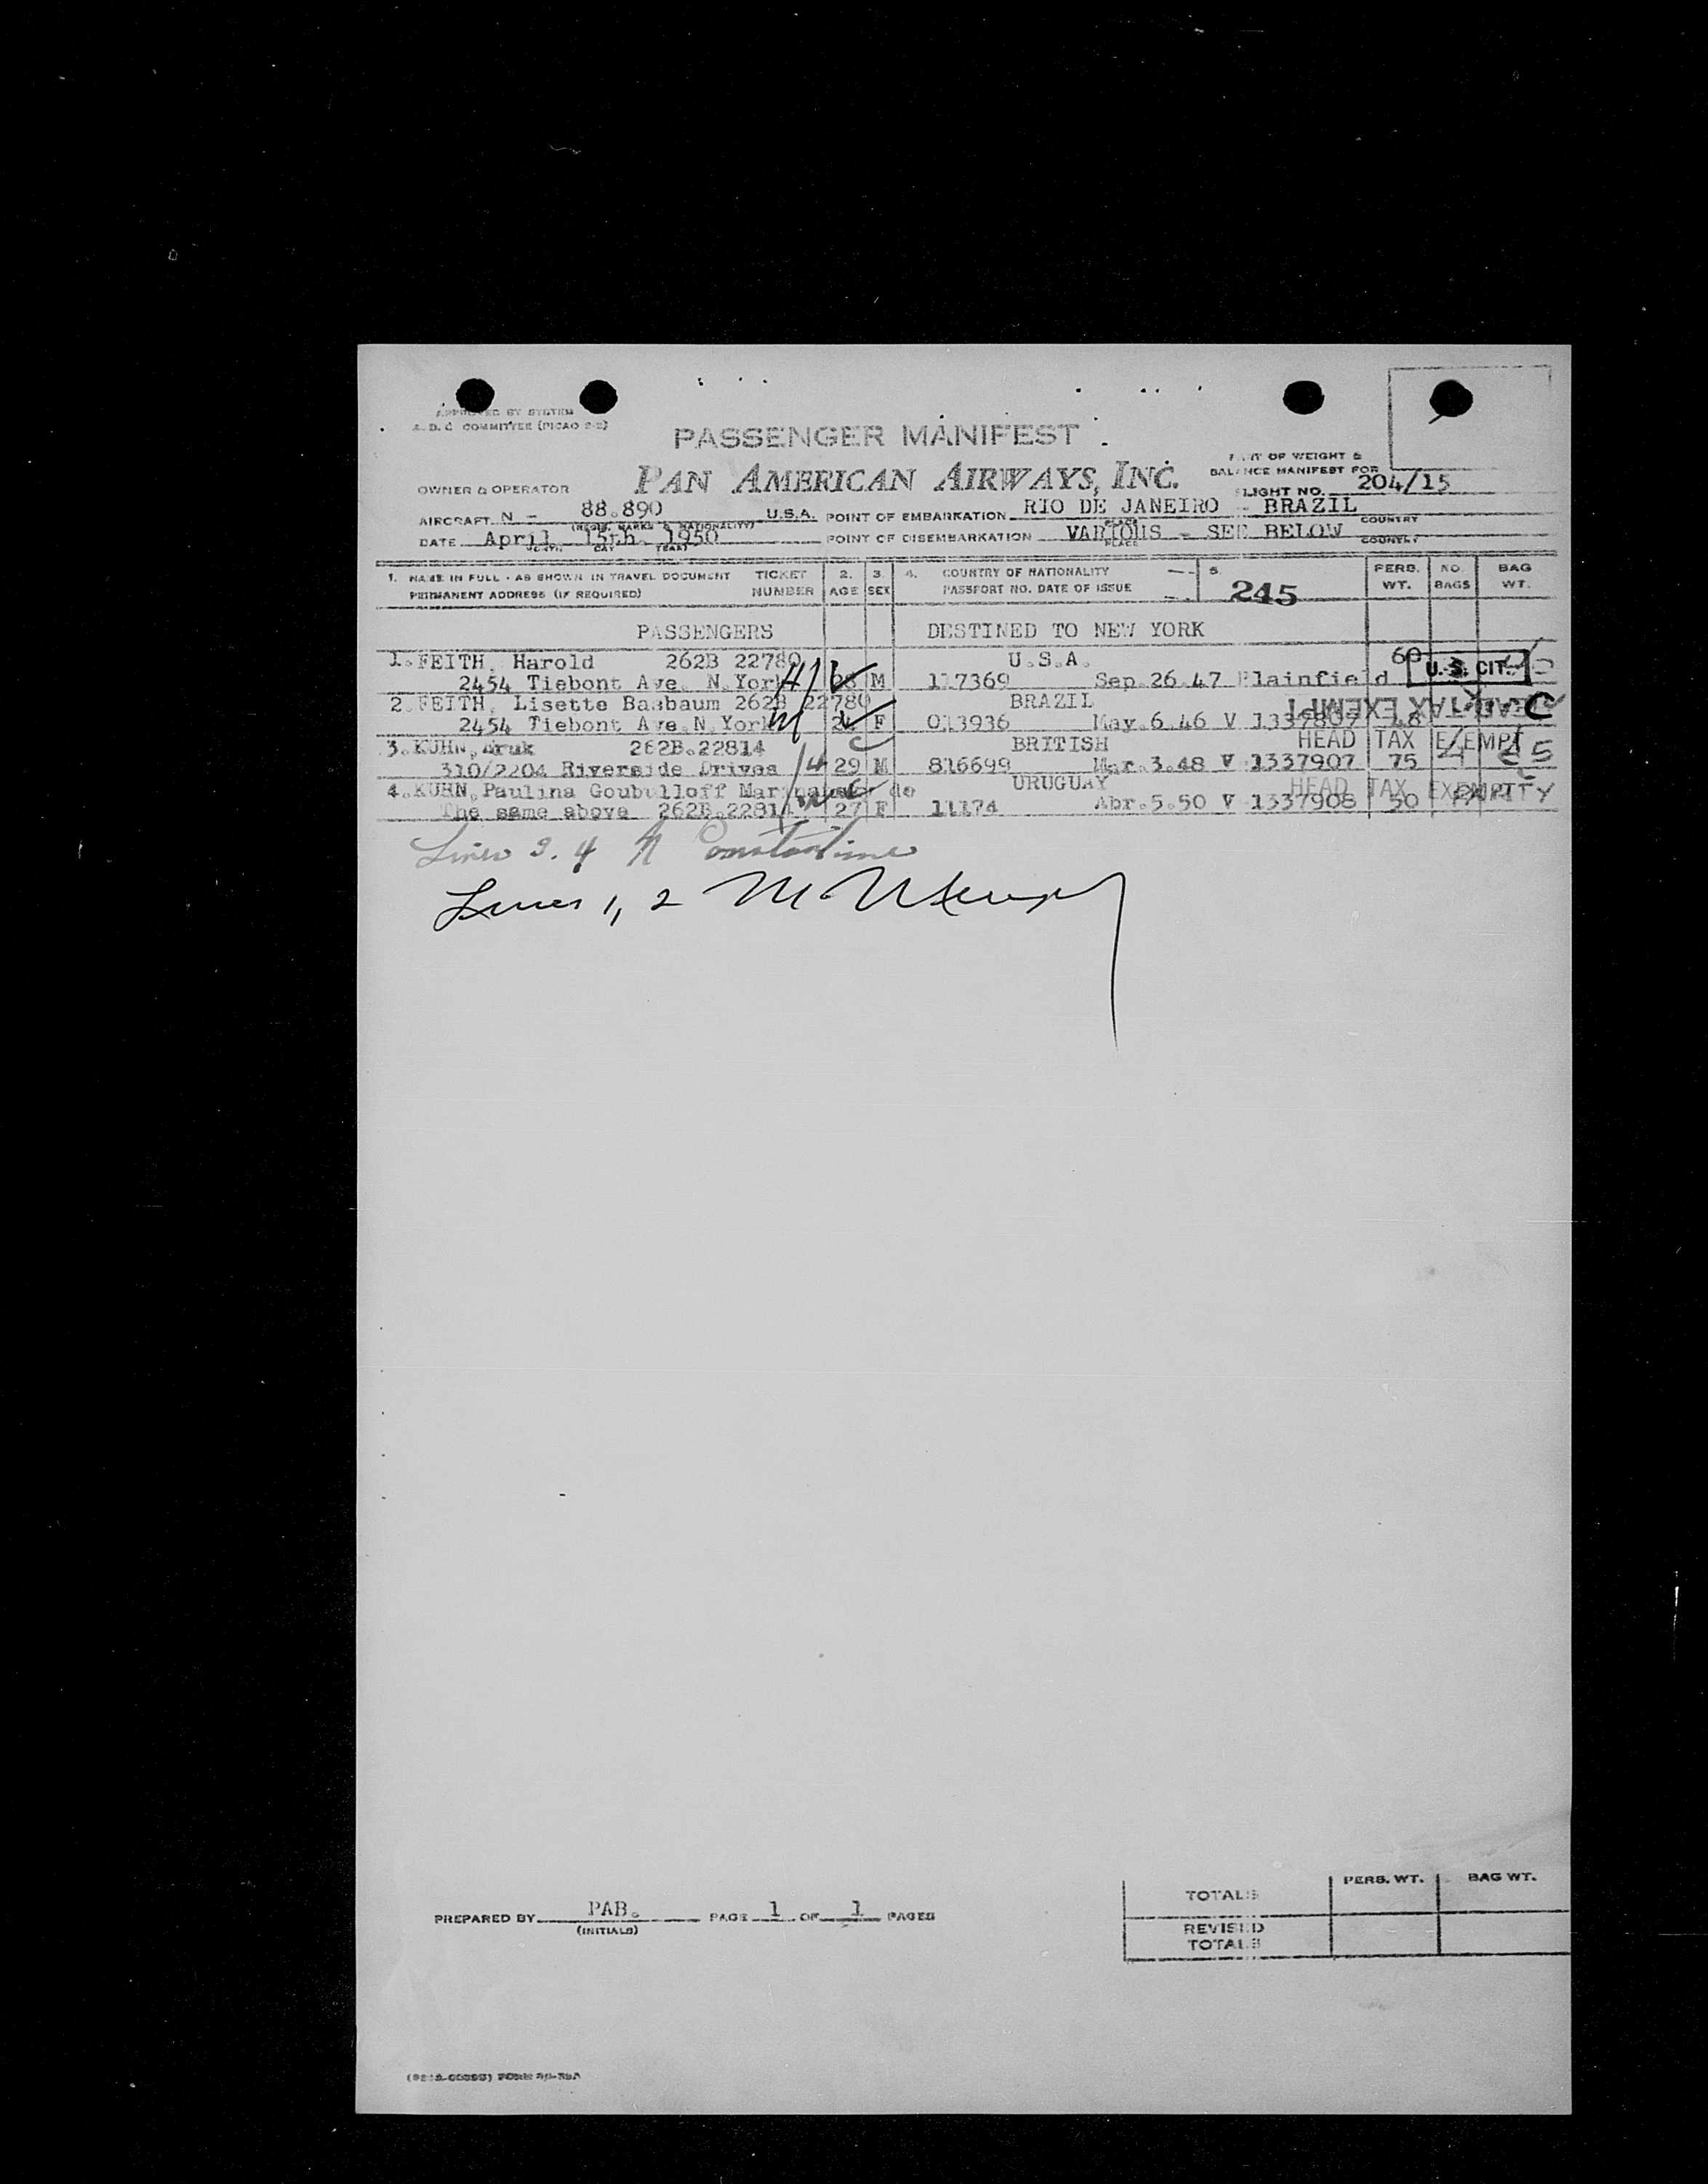 APPROVED BY SYSTEM
A. D. C COMMITTEE (PICAO 2-2)
PASSENGER MANIFEST
PAN AMERICAN AIRWAYS, INC.
PART OF WEIGHT &
BALANCE MANIFEST FOR
FLIGHT NO. 204/15
OWNER & OPERATOR
AIRCRAFT N - 88.890 U.S.A. POINT OF EMBARKATION RIO DE JANEIRO - BRAZIL
(REGIS. MARKS & NATIONALITY) PLACE COUNTRY
DATE April 15th. 1950 POINT OF DISEMBARKATION VARIOUS - SEE BELOW
MONTH DAY YEAR PLACE COUNTRY
1. NAME IN FULL - AS SHOWN IN TRAVEL DOCUMENT TICKET 2. 3. 4. COUNTRY OF NATIONALITY 5. PERS. NO. BAG
PERMANENT ADDRESS (IF REQUIRED) NUMBER AGE SEX PASSPORT NO. DATE OF ISSUE 245 WT. BAGS WT.
PASSENGERS DESTINED TO NEW YORK
1. FEITH, Harold 262B 22780 U.S.A. 60 U.S. CIT.
2454 Tiebont Ave. N.York M 117369 Sep.26.47 Plainfield
2. FEITH, Lisette Basbaum 262B 22780 BRAZIL HEAD TAX EXEMPT C
2454 Tiebont Ave.N.York 24 F 013936 May.6.46 V 1337809 48
3. KUHN, 262B.22814 BRITISH HEAD TAX EXEMPT
310/2204 Riverside Drives 14 29 M 816699 Mar.3.48 V 1337907 75
4. KUHN, Paulina de URUGUAY HEAD TAX EXEMPT
The same above 262B.22814 27 F 11174 Abr.5.50 V 1337908 50
Lines 3. 4 Constantine
Lines 1, 2 M
PREPARED BY PAB. PAGE 1 OF 1 PAGES
(INITIALS)
PERS. WT. BAG WT.
TOTALS
REVISED
TOTALS